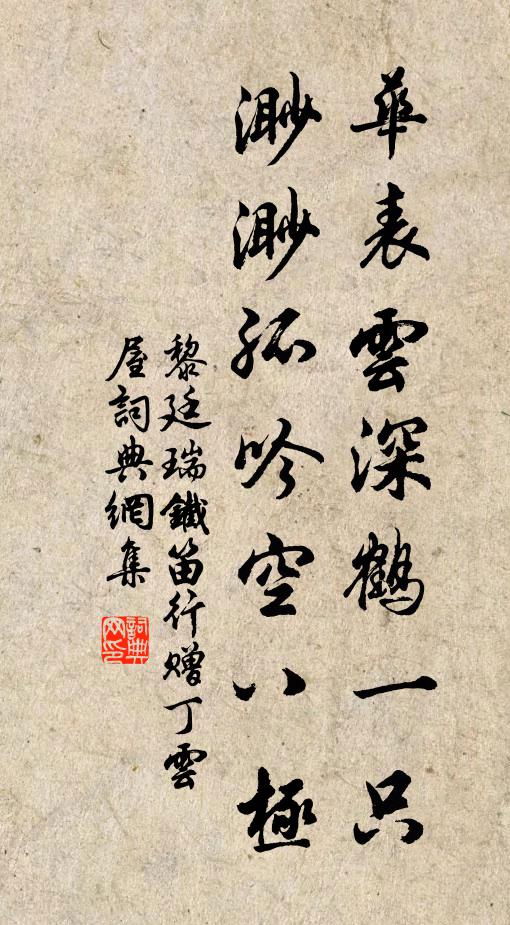 華表雲深鶴一只
渺渺孤吟空八極
黎廷瑞鐵笛行贈丁雲
屋詞典網集
詞典網印